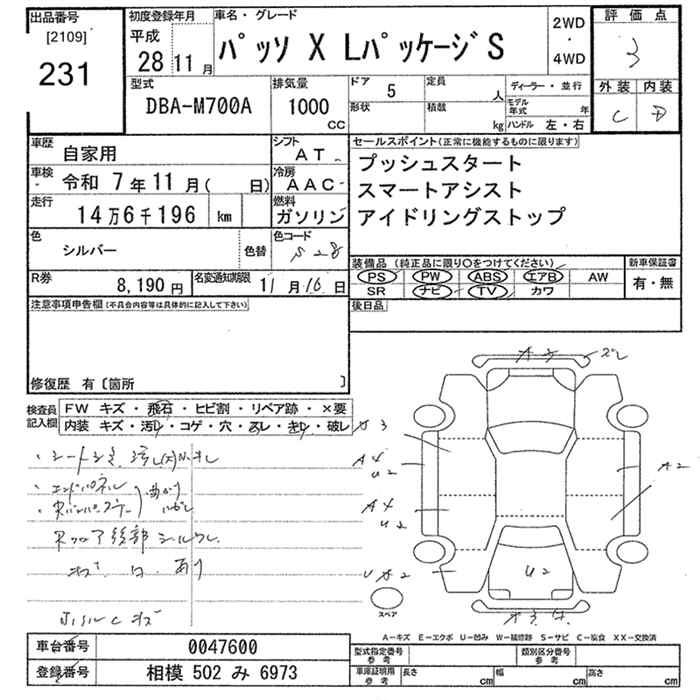 出品番号
[2109]
231
初度登録年月
平成
28 11 月
車名・グレード
パッソ X LパッケージS
2WD
・
4WD
評価点
3
外装 内装
C D
型式
DBA-M700A
排気量
1000
CC
ドア 5
定員 人
形状
積載 kg
ディーラー・並行
モデル年式 年
ハンドル 左・右
車歴
自家用
シフト
AT
車検
令和 7年11月( 日)
冷房
AAC
走行
14万6千196 km
燃料
ガソリン
色
シルバー
色替
色コード
S28
R券
8,190円
名変通知期限 11月16日
セールスポイント(正常に機能するものに限ります)
プッシュスタート
スマートアシスト
アイドリングストップ
装備品(純正品に限り○をつけてください)
PS PW ABS エアB AW
SR ナビ TV カワ
新車保証書
有・無
後日品
注意事項申告欄(不具合内容等は具体的に記入して下さい)
修復歴 有〔箇所 〕
検査員
記入欄
FW キズ・飛石・ヒビ割・リペア跡・×要
内装 キズ・汚レ・コゲ・穴・スレ・キレ・破レ
・エンドパネル
キズ
A4
U2
A4
U2
A2
U2
スペア
A-キズ E-エクボ U-凹み W-補修跡 S-サビ C-腐食 XX-交換済
車台番号 0047600
登録番号 相模 502 み 6973
型式指定番号
参考
類別区分番号
参考
車庫証明用
参考
長さ cm 幅 cm 高さ cm